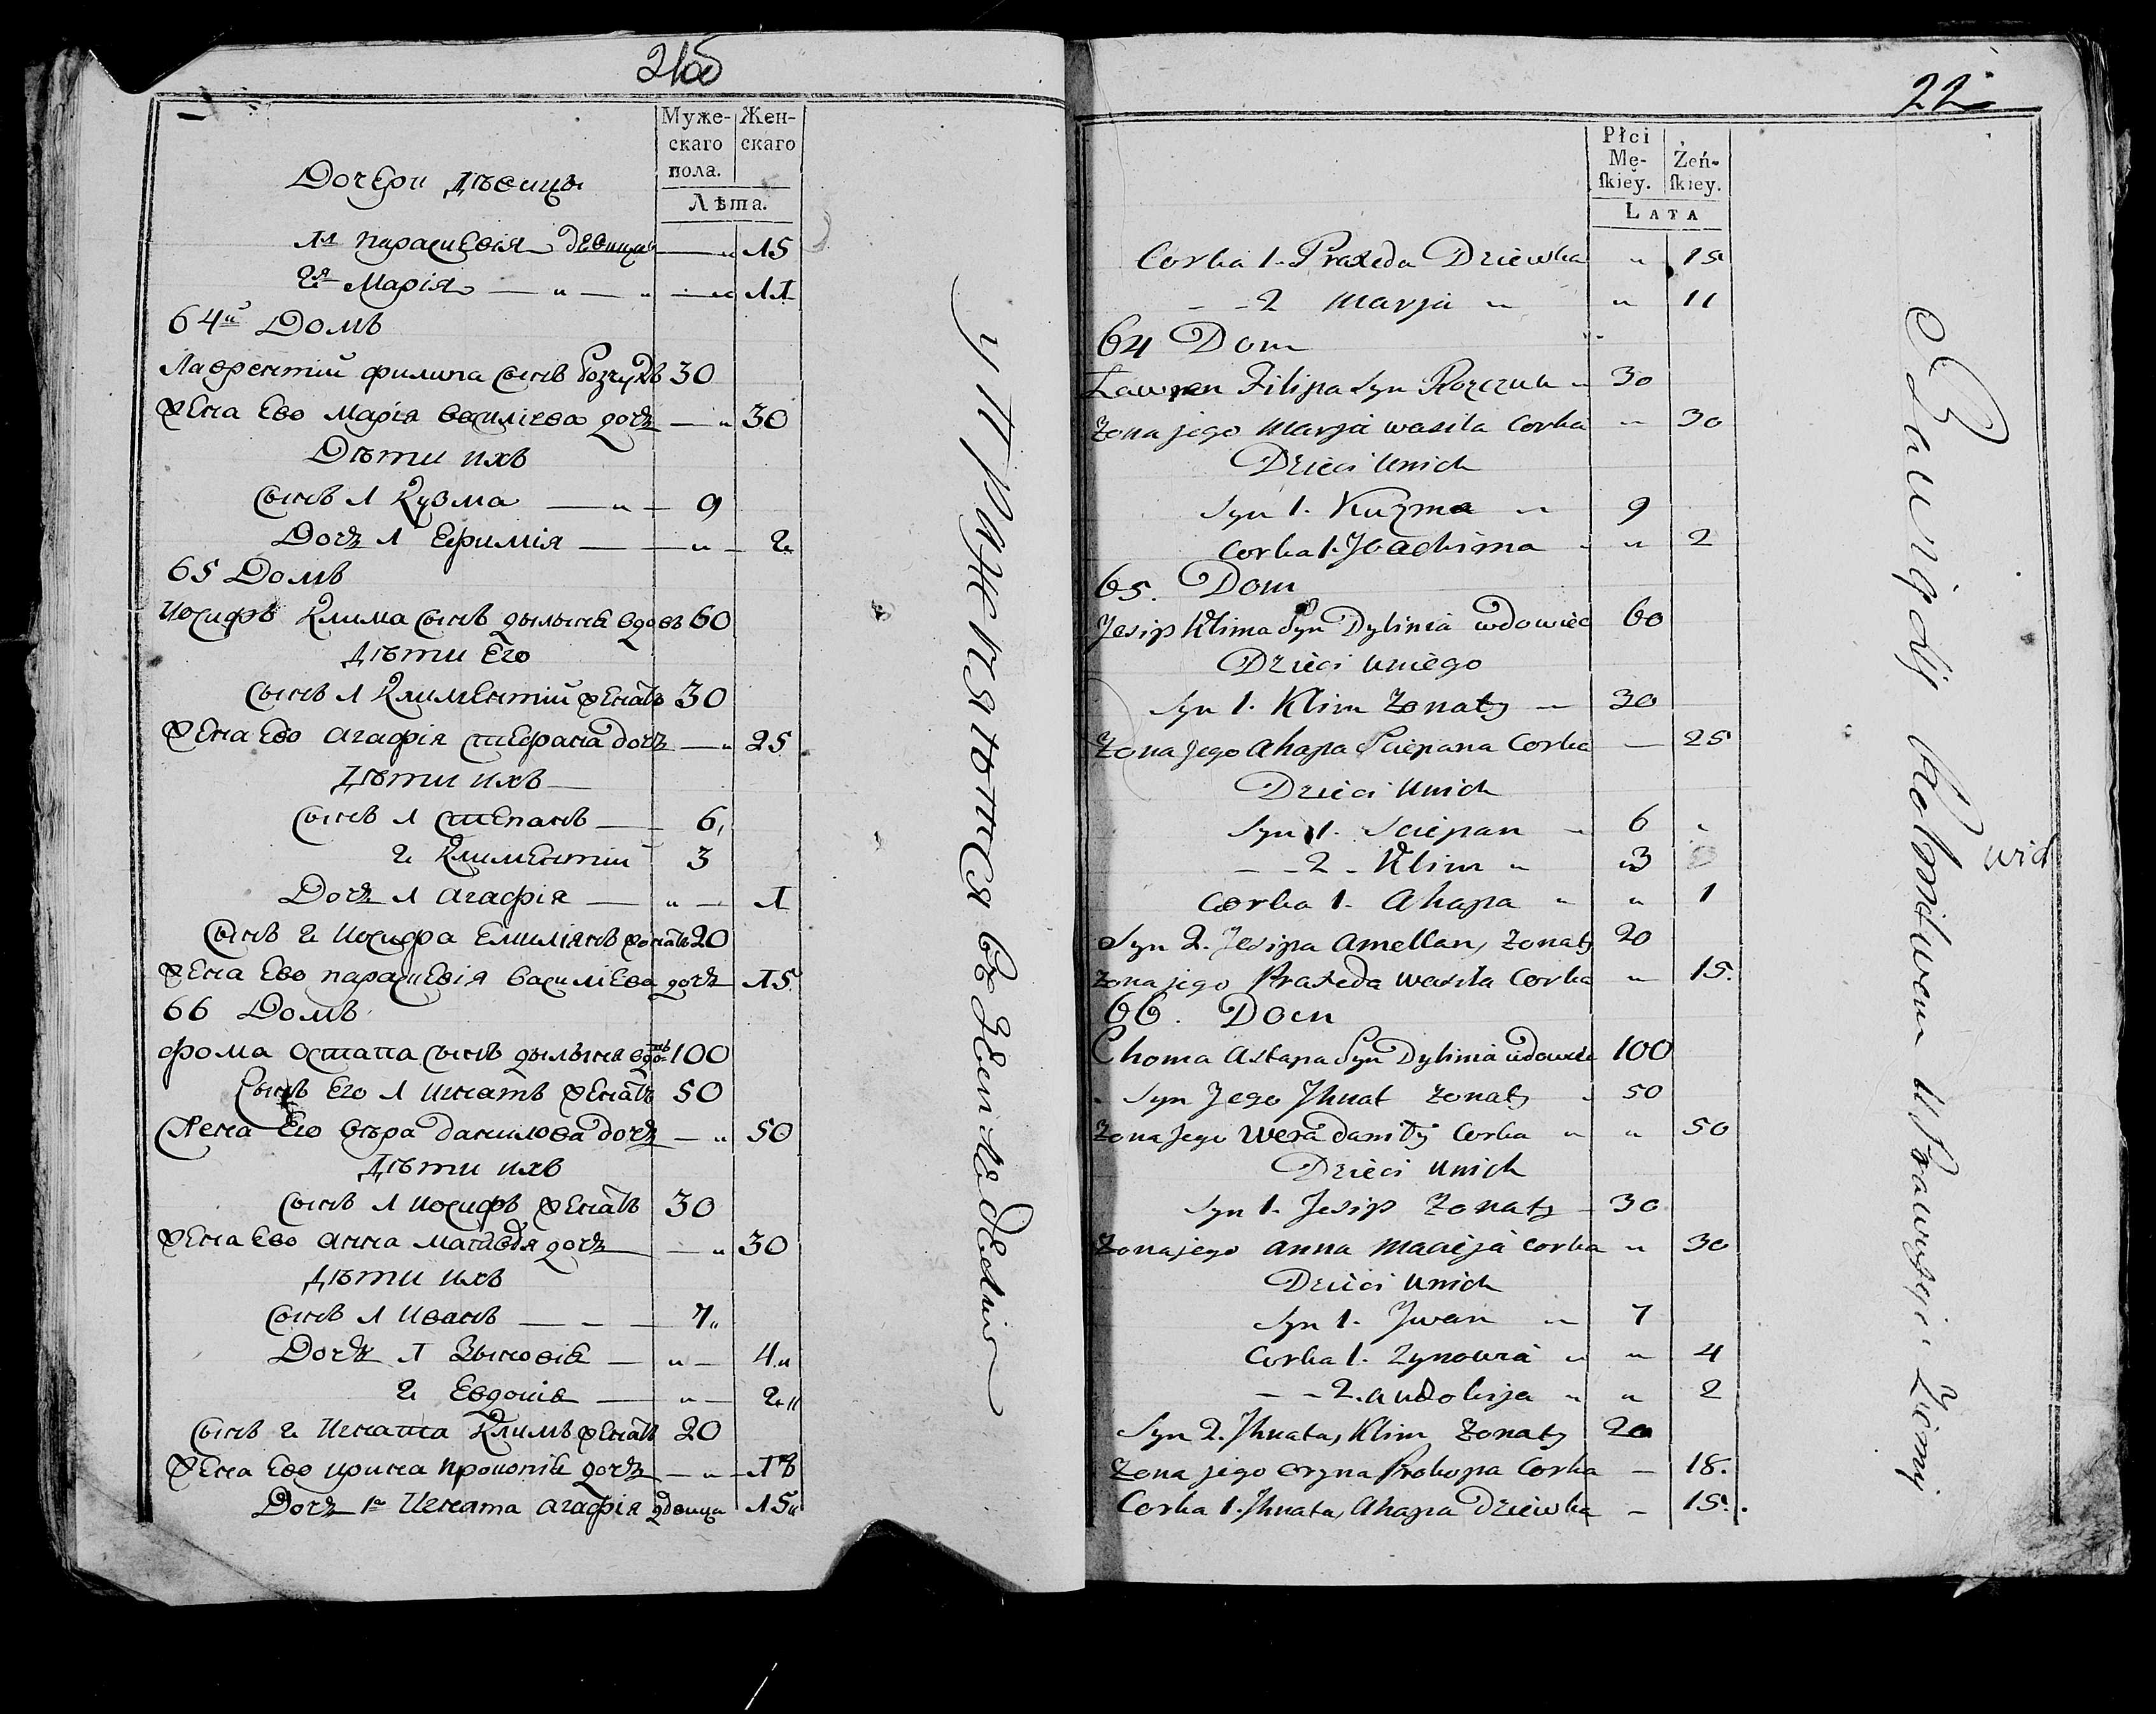 21об
Муже-
скаго
пола.
Жен-
скаго
Лѣта.
Дочери дѣвицы
1я Параскевія девица — „ 15
2я Марія — „ — „ — „ 11
64й Домъ
Лаврентій Филипа сынъ Розчукъ 30
Жена Ево Марія Василіева дочь — „ 30
Дѣти ихъ
Сынъ 1 Кузма — „ — 9
Дочь 1 Ефимія — „ — 2
65 Домъ
Иосифъ Клима сынъ Дылыня вдовъ 60
Дѣти Его
Сынъ 1 Климентій женатъ 30
Жена Ево Агафія Стефана дочь — „ 25
Дѣти ихъ —
Сынъ 1 Степанъ — 6
2 Климентій 3
Дочь 1 Агафія — „ — 1
Сынъ 2 Иосифа Емиліянъ женатъ 20
Жена Ево Параскевія Василіева дочь 15
66 Домъ
Фома Остапа сынъ Дылыня вдовъ 100
Сынъ Его 1 Игнатъ женатъ 50
Жена Его Вѣра Данилова дочь — „ 50
Дѣти ихъ
Сынъ 1 Иосифъ женатъ 30
Жена Ево Анна Матвѣя дочь — „ 30
Дѣти ихъ
Сынъ 1 Иванъ — — — 7„
Дочь 1 Зыновія — „ — 4„
2 Евдокія — „ — 2„
Сынъ 2 Игната Климъ женатъ 20
Жена Ево Ирина Прокопія дочь — „ — 18
Дочь 1я Игната Агафія двица 15„
упражняются въ земледеліи
22
Płci
Mę-
ſkieÿ.
Żeń-
ſkiey.
LATA
Corka 1. Praxeda Dziewka „ 15
— — 2 Marja „ „ 11
64 Dom
Ławren Filipa Syn Rozczuk „ 30
Zona jego Marja Wasila Corka „ 30
Dzieci Unich
Syn 1. Kuzma „ 9
Corka 1. Joachima „ „ 2
65. Dom
Jesip Klima Syn Dylinia wdowiec 60
Dzieci Uniego
Syn 1. Klim Zonaty — 30
Zona Jego Ahapa Sciepana Corka — 25
Dzieci Unich
Syn 1. Sciepan „ 6 „
— — 2 — Klim „ „3
Corka 1. Ahapa „ „ 1
Syn 2. Jesipa Amellan, Zonaty 20
Zona jego Praxeda Wasila Corka „ 15.
66. Dom
Choma Astapa Syn Dylinia wdowiec 100
Syn Jego Jhnat Zonaty „ 50
Zona Jego Wera Daniły Corka „ „ 50
Dzieci Unich
Syn 1. Jesip Zonaty — 30
Zona jego Anna Macieja Corka „ 30
Dzieci Unich
Syn 1. Jwan „ 7
Corka 1. Zynowia „ „ 4
— — 2. Audokija „ „ 2
Syn 2. Jhnata, Klim Zonaty 20
Zona jego Oryna Prokopa Corka — 18.
Corka 1. Jhnata, Ahapa Dziewka — 15.
Uprawą Ziemi